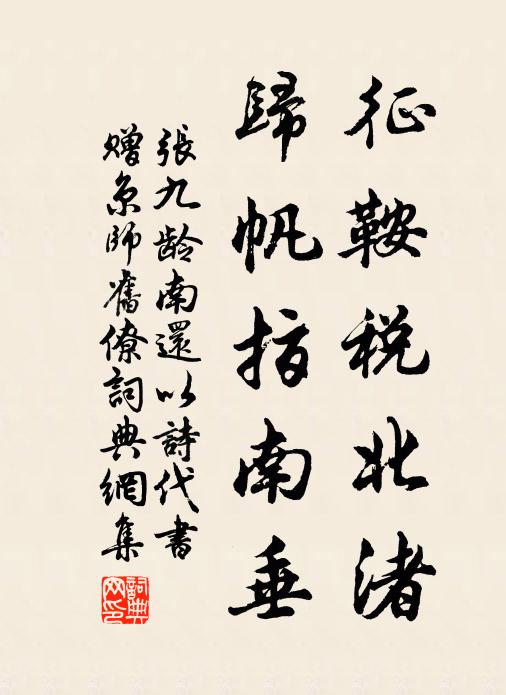 征鞍税北渚
歸帆指南垂
張九龄南還以詩代書
贈京師舊僚詞典網集
詞典网印